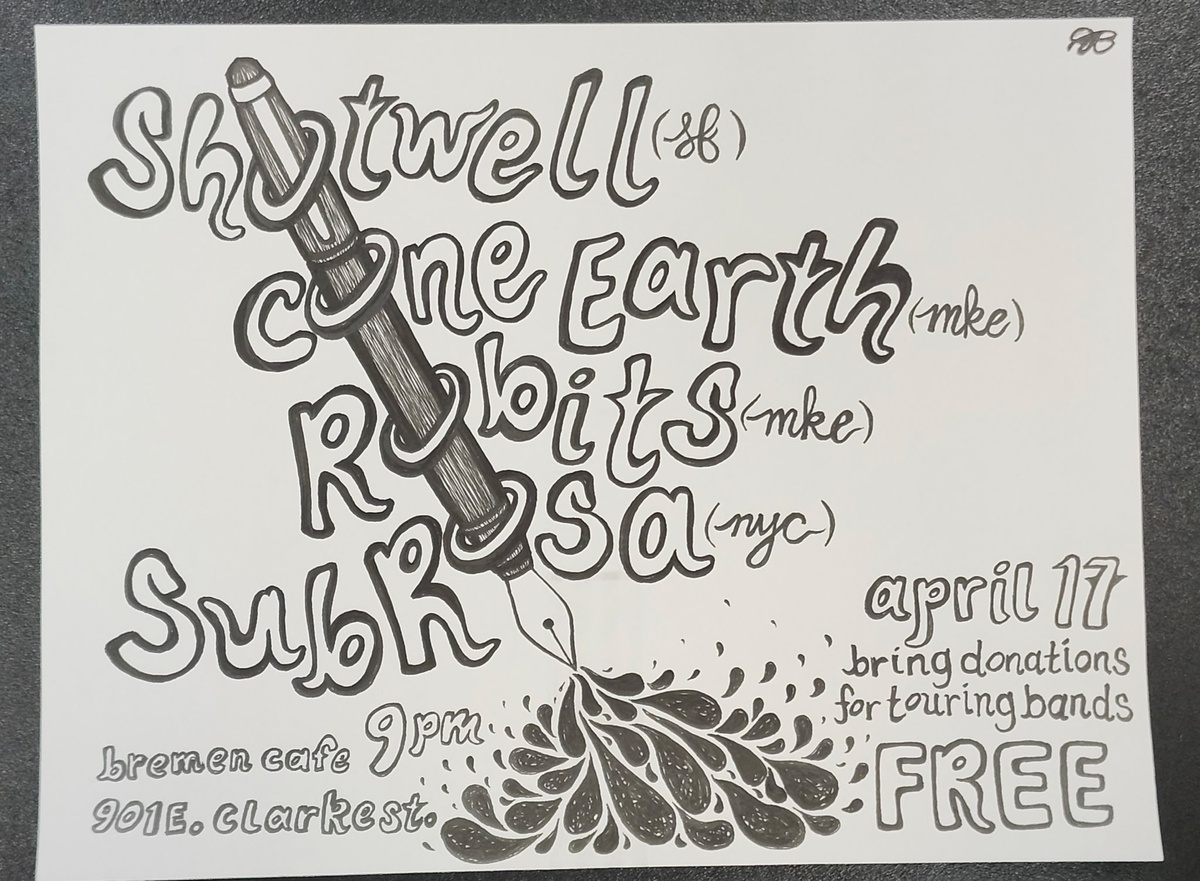 Shotwell (sf)
Cone Earth (mke)
Robits (mke)
SubRosa (nyc)
april 17
bring donations
for touring bands
FREE
9pm
bremen cafe
901 E. Clarke st.